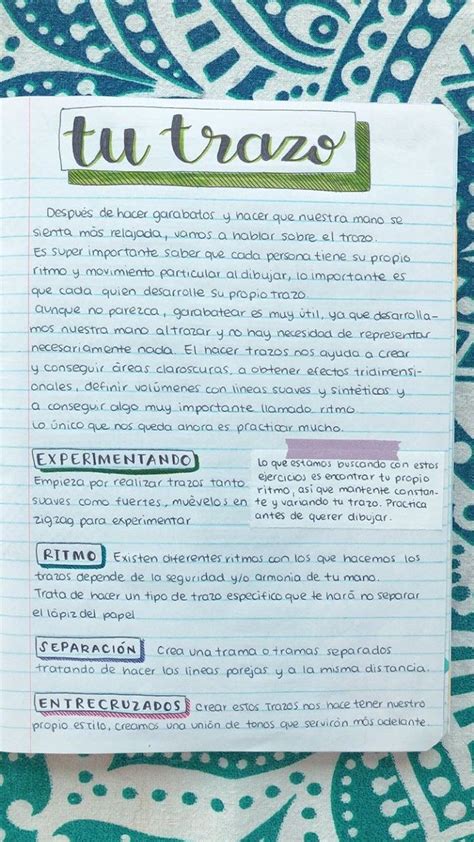 tu trazo
Después de hacer garabatos y hacer que nuestra mano se
sienta más relajada, vamos a hablar sobre el trazo.
Es super importante saber que cada persona tiene su propio
ritmo y movimiento particular al dibujar, lo importante es
que cada quien desarrolle su propio trazo.
Aunque no parezca, garabatear es muy útil, ya que desarrolla-
mos nuestra mano al trazar y no hay necesidad de representar
necesariamente nada. El hacer trazos nos ayuda a crear
y conseguir áreas claroscuras, a obtener efectos tridimensi-
onales, definir volúmenes con líneas suaves y sintéticos y
a conseguir algo muy importante llamado ritmo.
Lo único que nos queda ahora es practicar mucho.
EXPERIMENTANDO
Empieza por realizar trazos tanto
suaves como fuertes, muévelos en
zigzag para experimentar
Lo que estamos buscando con estos
ejercicios es encontrar tu propio
ritmo, así que mantente constan-
te y variando tu trazo. Practica
antes de querer dibujar.
RITMO Existen diferentes ritmos con los que hacemos los
trazos depende de la seguridad y/o armonia de tu mano.
Trata de hacer un tipo de trazo especifico que te hará no separar
el lápiz del papel
SEPARACIÓN Crea una trama o tramas separados
tratando de hacer las líneas parejas y a la misma distancia.
ENTRECRUZADOS Crear estos trazos nos hace tener nuestro
propio estilo, creamos una unión de tonos que servirán más adelante.